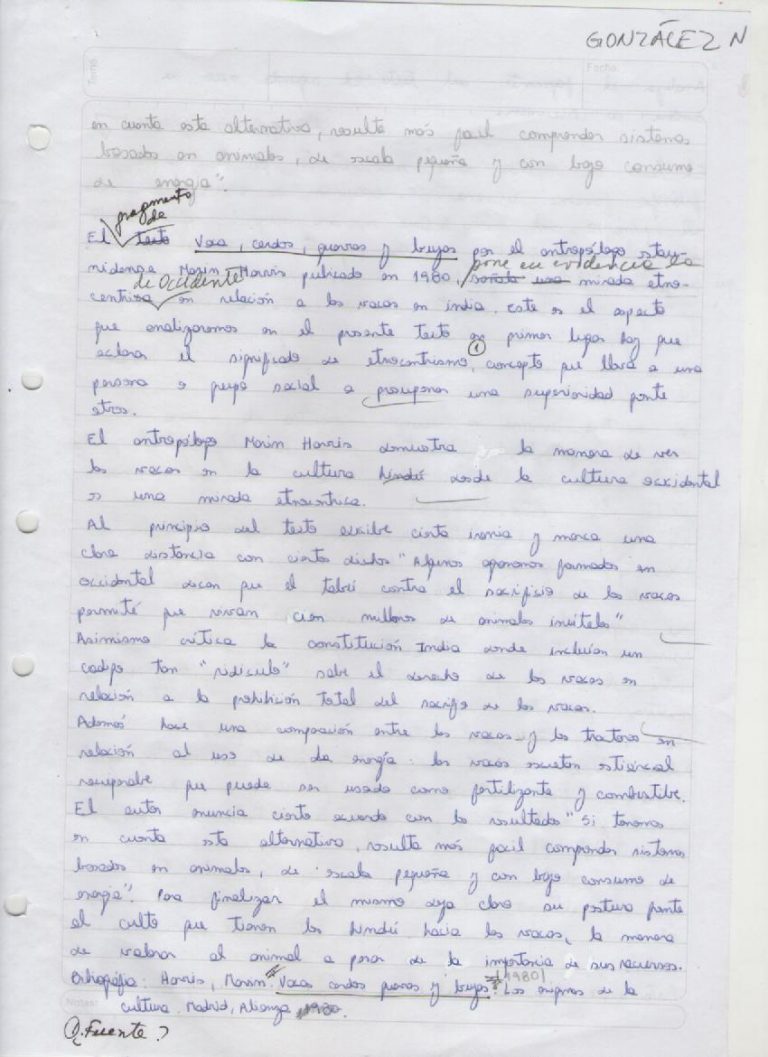 GONZÁLEZ N
Fecha:
en cuenta esta alternativa, resulta más facil comprender sistemas
basados en animales, de escala pequeña y con bajo consumo
de energia".
fragmento
de
El texto Vaca, cerdos, guerras y brujas por el antropólogo estau-
nidense Marin Harris publicado en 1980, pone en evidencia la señala una mirada etno-
de Occidente
centrica en relación a las vacas en india. este es el aspecto
que analizaremos en el presente texto en primer lugar hay que
aclarar el significado de etnocentrismo, (1) concepto que lleva a una
persona o grupo social a presuponer una superioridad frente
otros.
El antropólogo Marin Harris demuestra la manera de ver
las vacas en la cultura hindú desde la cultura occidental
es una mirada etnocentrica.
Al principio del texto exhibe cierta ironia y marca una
clara distancia con ciertos dichos "Algunos agronomos formados en
occidental dicen que el tabú contra el sacrificio de las vacas
permite que vivan cien millones de animales inutiles"
Asimismo critica la constitución India donde incluian un
codigo tan "ridiculo" sobre el derecho de las vacas en
relación a la prohibición total del sacrificio de las vacas.
Además hace una comparación entre las vacas y los tractores en
relación al uso de la energía: las vacas excretan estiercol
recuperable que puede ser usado como fertilizante y combustible.
El autor enuncia cierto acuerdo con los resultados "Si tenemos
en cuenta esta alternativa, resulta más facil comprender sistemas
basados en animales, de escala pequeña y con bajo consumo de
energia". Para finalizar el mismo deja claro su postura frente
al culto que tienen los hindú hacia las vacas, la manera
de valorar al animal a pesar de la importancia de sus recursos.
Harris, Marin. Vacas cerdos guerras y brujas. (1980) Los origenes de la
Notas:
cultura. Madrid, Alianza 1980.
Fuente?